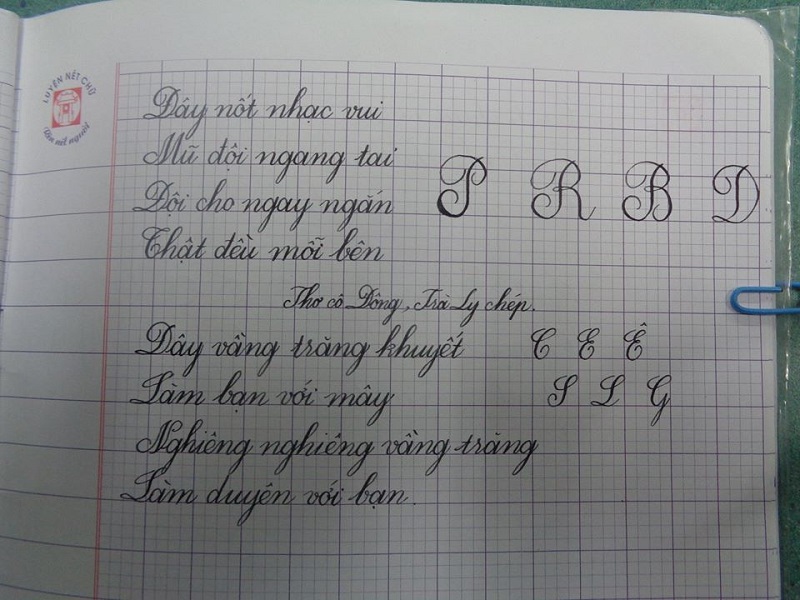 LUYỆN NÉT CHỮ
Rèn nết người
Đây nốt nhạc vui
Mũ đội ngang tai
Đội cho ngay ngắn
Thật đều mỗi bên
P R B D
Thơ cô Đông, Trà Ly chép.
Đây vầng trăng khuyết
Làm bạn với mây
Nghiêng nghiêng vầng trăng
Làm duyên với bạn.
C E Ê
S L G